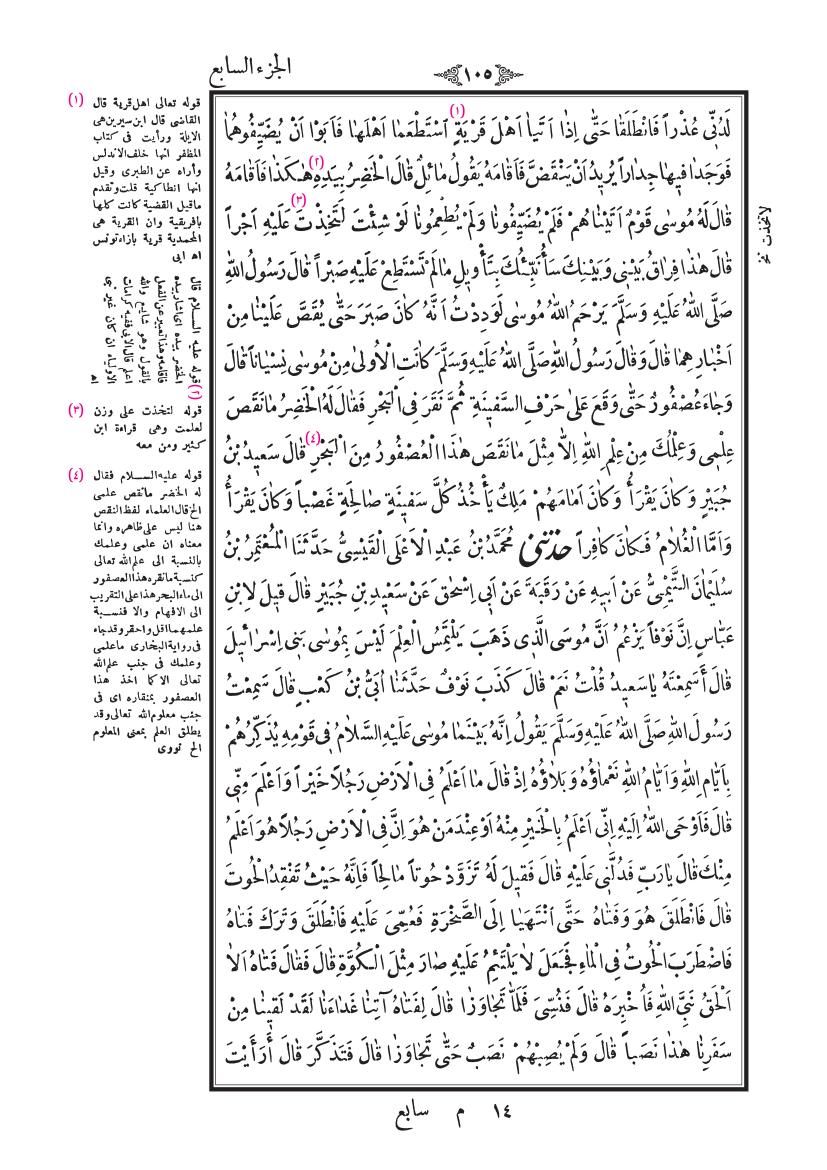 ١٠٥
الجزء السابع
لَدُنِّي عُذْراً فَانْطَلَقَا حَتّٰى اِذٰا اَتَيٰا اَهْلَ قَرْيَةٍ (١) اَسْتَطْعَمٰا اَهْلَهٰا فَاَبَوْا اَنْ يُضَيِّفُوهُمٰا
فَوَجَدٰا فيهٰا جِدٰاراً يُريدُ اَنْ يَنْقَضَّ فَاَقٰامَهُ يَقُولُ مٰائِلٌ قٰالَ الْخَضِرُ بِيَدِهِ (٢) هٰكَذٰا فَاَقٰامَهُ
قٰالَ لَهُ مُوسٰى قَوْمٌ اَتَيْنٰاهُمْ فَلَمْ يُضَيِّفُونٰا وَلَمْ يُطْعِمُونٰا لَوْ شِئْتَ لَتَخِذْتَ (٣) عَلَيْهِ اَجْراً
قٰالَ هٰذٰا فِرٰاقُ بَيْنى وَبَيْنِكَ سَأُنَبِّئُكَ بِتَأْويلِ مٰالَمْ تَسْتَطِعْ عَلَيْهِ صَبْراً قٰالَ رَسُولُ اللهِ
صَلَّى اللهُ عَلَيْهِ وَسَلَّمَ يَرْحَمُ اللهُ مُوسٰى لَوَدِدْتُ اَنَّهُ كٰانَ صَبَرَ حَتّٰى يُقَصَّ عَلَيْنٰا مِنْ
اَخْبٰارِهِمٰا قٰالَ وَقٰالَ رَسُولُ اللهِ صَلَّى اللهُ عَلَيْهِ وَسَلَّمَ كٰانَتِ الْاُولىٰ مِنْ مُوسٰى نِسْيٰاناً قٰالَ
وَجٰاءَ عُصْفُورٌ حَتّٰى وَقَعَ عَلىٰ حَرْفِ السَّفينَةِ ثُمَّ نَقَرَ فِى الْبَحْرِ فَقٰالَ لَهُ الْخَضِرُ مٰا نَقَصَ
عِلْمى وَعِلْمُكَ مِنْ عِلْمِ اللهِ اِلاّٰ مِثْلَ مٰا نَقَصَ هٰذَا الْعُصْفُورُ مِنَ الْبَحْرِ (٤) قٰالَ سَعيدُ بْنُ
جُبَيْرٍ وَكٰانَ يَقْرَأُ وَكٰانَ اَمٰامَهُمْ مَلِكٌ يَأْخُذُ كُلَّ سَفينَةٍ صٰالِحَةٍ غَصْباً وَكٰانَ يَقْرَأُ
وَاَمَّا الْغُلٰامُ فَكٰانَ كٰافِراً حَدَّثَنى مُحَمَّدُ بْنُ عَبْدِ الْاَعْلَى الْقَيْسِىُّ حَدَّثَنَا الْمُعْتَمِرُ بْنُ
سُلَيْمٰانَ التَّيْمِىُّ عَنْ اَبيهِ عَنْ رَقَبَةَ عَنْ اَبى اِسْحٰقَ عَنْ سَعيدِ بْنِ جُبَيْرٍ قٰالَ قيلَ لِابْنِ
عَبّٰاسٍ اِنَّ نَوْفاً يَزْعُمُ اَنَّ مُوسَى الَّذى ذَهَبَ يَلْتَمِسُ الْعِلْمَ لَيْسَ بِمُوسٰى بَنى اِسْرٰائيلَ
قٰالَ أَسَمِعْتَهُ يٰا سَعيدُ قُلْتُ نَعَمْ قٰالَ كَذَبَ نَوْفٌ حَدَّثَنٰا اُبَىُّ بْنُ كَعْبٍ قٰالَ سَمِعْتُ
رَسُولَ اللهِ صَلَّى اللهُ عَلَيْهِ وَسَلَّمَ يَقُولُ اِنَّهُ بَيْنَمٰا مُوسٰى عَلَيْهِ السَّلٰامُ فى قَوْمِهِ يُذَكِّرُهُمْ
بِاَيّٰامِ اللهِ وَاَيّٰامُ اللهِ نَعْمٰاؤُهُ وَبَلٰاؤُهُ اِذْ قٰالَ مٰا اَعْلَمُ فِى الْاَرْضِ رَجُلاً خَيْراً وَاَعْلَمَ مِنّى
قٰالَ فَاَوْحَى اللهُ اِلَيْهِ اِنّى اَعْلَمُ بِالْخَيْرِ مِنْهُ اَوْ عِنْدَ مَنْ هُوَ اِنَّ فِى الْاَرْضِ رَجُلاً هُوَ اَعْلَمُ
مِنْكَ قٰالَ يٰا رَبِّ فَدُلَّنى عَلَيْهِ قٰالَ فَقيلَ لَهُ تَزَوَّدْ حُوتاً مٰالِحاً فَاِنَّهُ حَيْثُ تَفْقِدُ الْحُوتَ
قٰالَ فَانْطَلَقَ هُوَ وَفَتٰاهُ حَتَّى انْتَهَيٰا اِلَى الصَّخْرَةِ فَعُمِّىَ عَلَيْهِ فَانْطَلَقَ وَتَرَكَ فَتٰاهُ
فَاضْطَرَبَ الْحُوتُ فِى الْمٰاءِ فَجَعَلَ لٰا يَلْتَئِمُ عَلَيْهِ صٰارَ مِثْلَ الْكُوَّةِ قٰالَ فَقٰالَ فَتٰاهُ اَلٰا
اَلْحَقُ نَبِىَّ اللهِ فَاُخْبِرَهُ قٰالَ فَنُسِّىَ فَلَمّٰا تَجٰاوَزٰا قٰالَ لِفَتٰاهُ آتِنٰا غَدٰاءَنٰا لَقَدْ لَقينٰا مِنْ
سَفَرِنٰا هٰذٰا نَصَباً قٰالَ وَلَمْ يُصِبْهُمْ نَصَبٌ حَتّٰى تَجٰاوَزٰا قٰالَ فَتَذَكَّرَ قٰالَ أَرَأَيْتَ
لاتخذت نخ
(١) قوله تعالى اهل قرية قال
القاضى قال ابن سيرين هى
الايلة ورأيت فى كتاب
المظفر انها خلف الاندلس
وأراه عن الطبرى وقيل
انها انطاكية قلت وتقدم
ماقيل القضية كانت كلها
بافريقية وان القرية هى
المحمدية قرية بازاء تونس
اه ابى
(٢) قوله عليه السلام قال
الخضر بيده اى اشار بيده
فاقامه وهذا تعبير عن الفعل
بالقول وهو شايع والله
اعلم قال الابى ففيه كرامات
الاولياء ان كان غير نبى
اه
(٣) قوله لتخذت على وزن
لعلمت وهى قراءة ابن
كثير ومن معه
(٤) قوله عليه السلام فقال
له الخضر مانقص علمى
الخ قال العلماء لفظ النقص
هنا ليس على ظاهره وانما
معناه ان علمى وعلمك
بالنسبة الى علم الله تعالى
كنسبة مانقره هذا العصفور
الى ماء البحر هذا على التقريب
الى الافهام والا فنسبة
علمهما اقل واحقر وقد جاء
فى رواية البخارى ماعلمى
وعلمك فى جنب علم الله
تعالى الا كما اخذ هذا
العصفور بمنقاره اى فى
جنب معلوم الله تعالى وقد
يطلق العلم بمعنى المعلوم
الخ نووى
١٤ م سابع